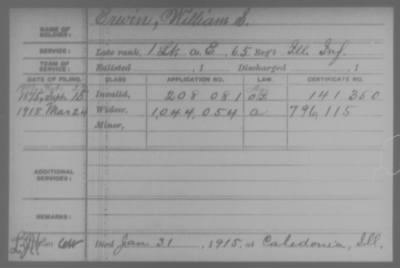 NAME OF SOLDIER: Erwin, William S.
SERVICE: Late rank, 1 Lt. Co. E, 65 Reg't Ill. Inf.
TERM OF SERVICE: Enlisted , 1 Discharged , 1
DATE OF FILING. CLASS. APPLICATION NO. LAW. CERTIFICATE NO.
1875, Sept. Invalid, 208 081 141 350
1915 Mar 24 Widow, 1,044,054 a 796,115
Minor,
ADDITIONAL SERVICES:
REMARKS:
Died Jan 31, 1915, at Caledonia, Ill.